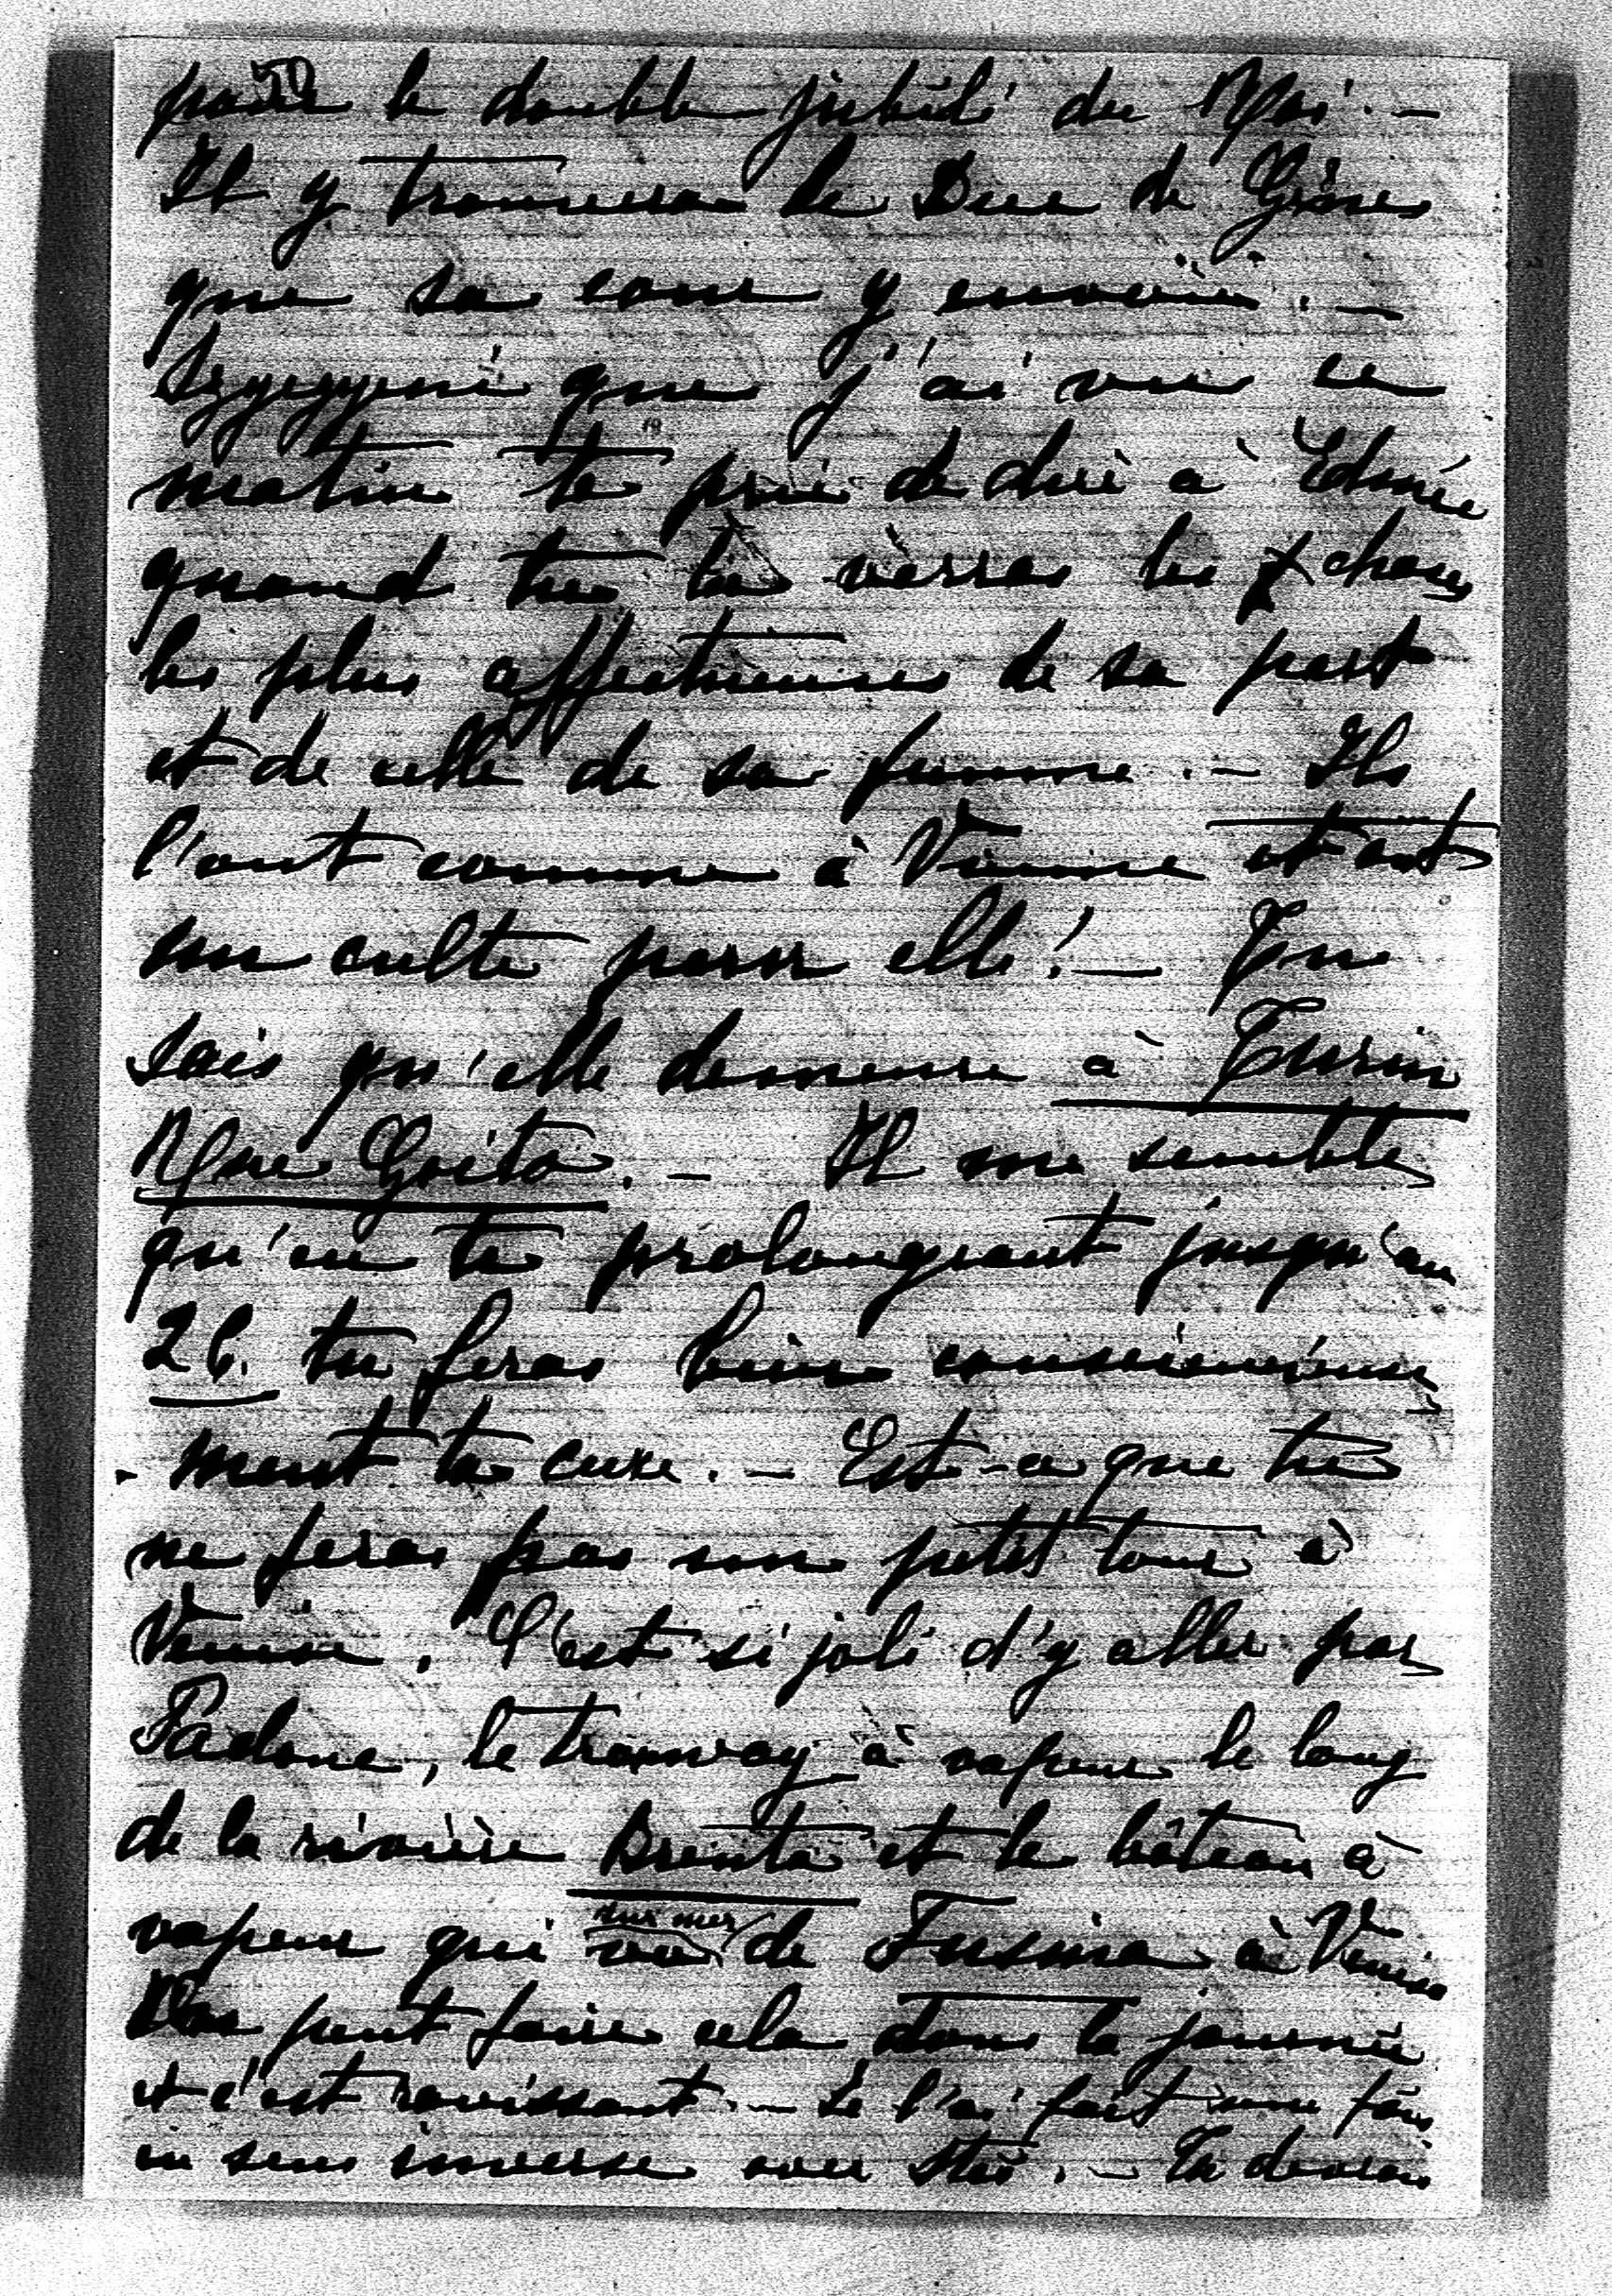 50
pour le double jubilé du Roi. —
Il y trouvera le Duc de Gênes
que sa cour y envoie. —
que j'ai vu ce
matin te prie de dire à Edmée
quand tu la verras les choses
les plus affectueuses de sa part
et de celle de sa femme. — Ils
l'ont connue à Vienne et ont
un culte pour elle! — Tu
sais qu'elle demeure à Turin
Rue Goito. — Il me semble
qu'en te prolongeant jusqu'au
26. tu feras bien consciencieuse
-ment ta cure. — Est-ce que tu
ne feras pas un petit tour à
Venise. C'est si joli d'y aller par
Padoue, le tramway à vapeur le long
de la rivière Brenta et le bâteau à
vapeur qui va sur mer de Fusina à Venise
On peut faire cela dans la journée
et c'est ravissant. — Je l'ai fait une fois
en sens inverse avec . — Tu devrais